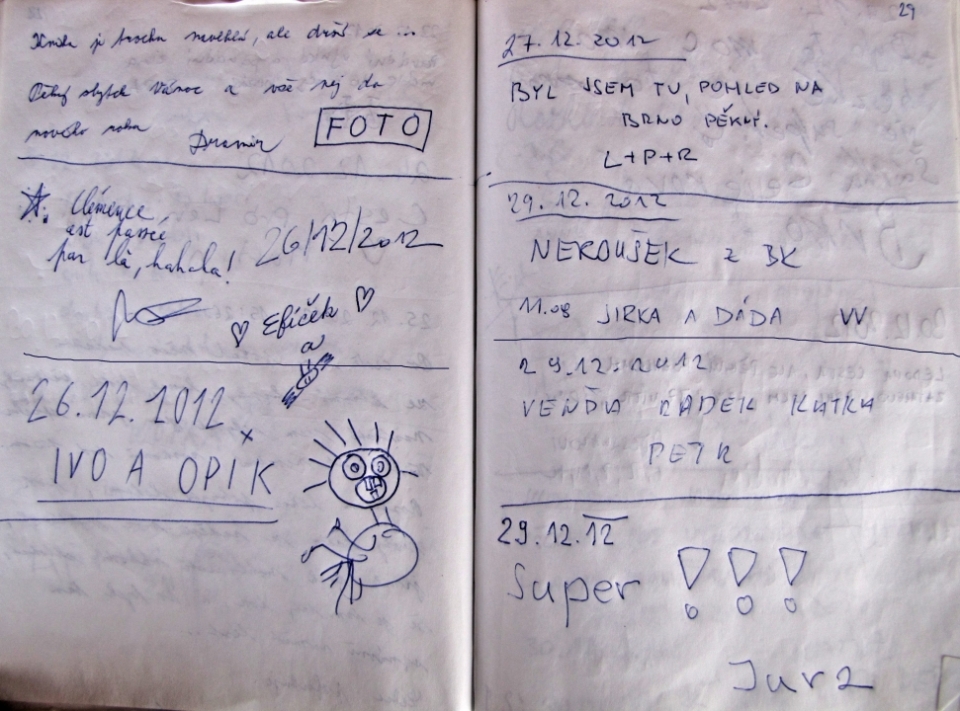 Kniha je trochu navlhlá, ale drží se ...
Pěkný zbytek Vánoc a vše nej do
nového roku
FOTO
Clémence
est passée
par là, hahaha!
26/12/2012
♡ Efíček ♡
a
26.12.2012
IVO A OPIK
29
27.12.2012
BYL JSEM TU, POHLED NA
BRNO PĚKNÝ.
L+P+R
29.12.2012
NEROUŠEK z BK
11.09 JIRKA A DÁDA VV
29.12.2012
VENĎA RADEK KATKA
PETR
29.12.12
Super !!!